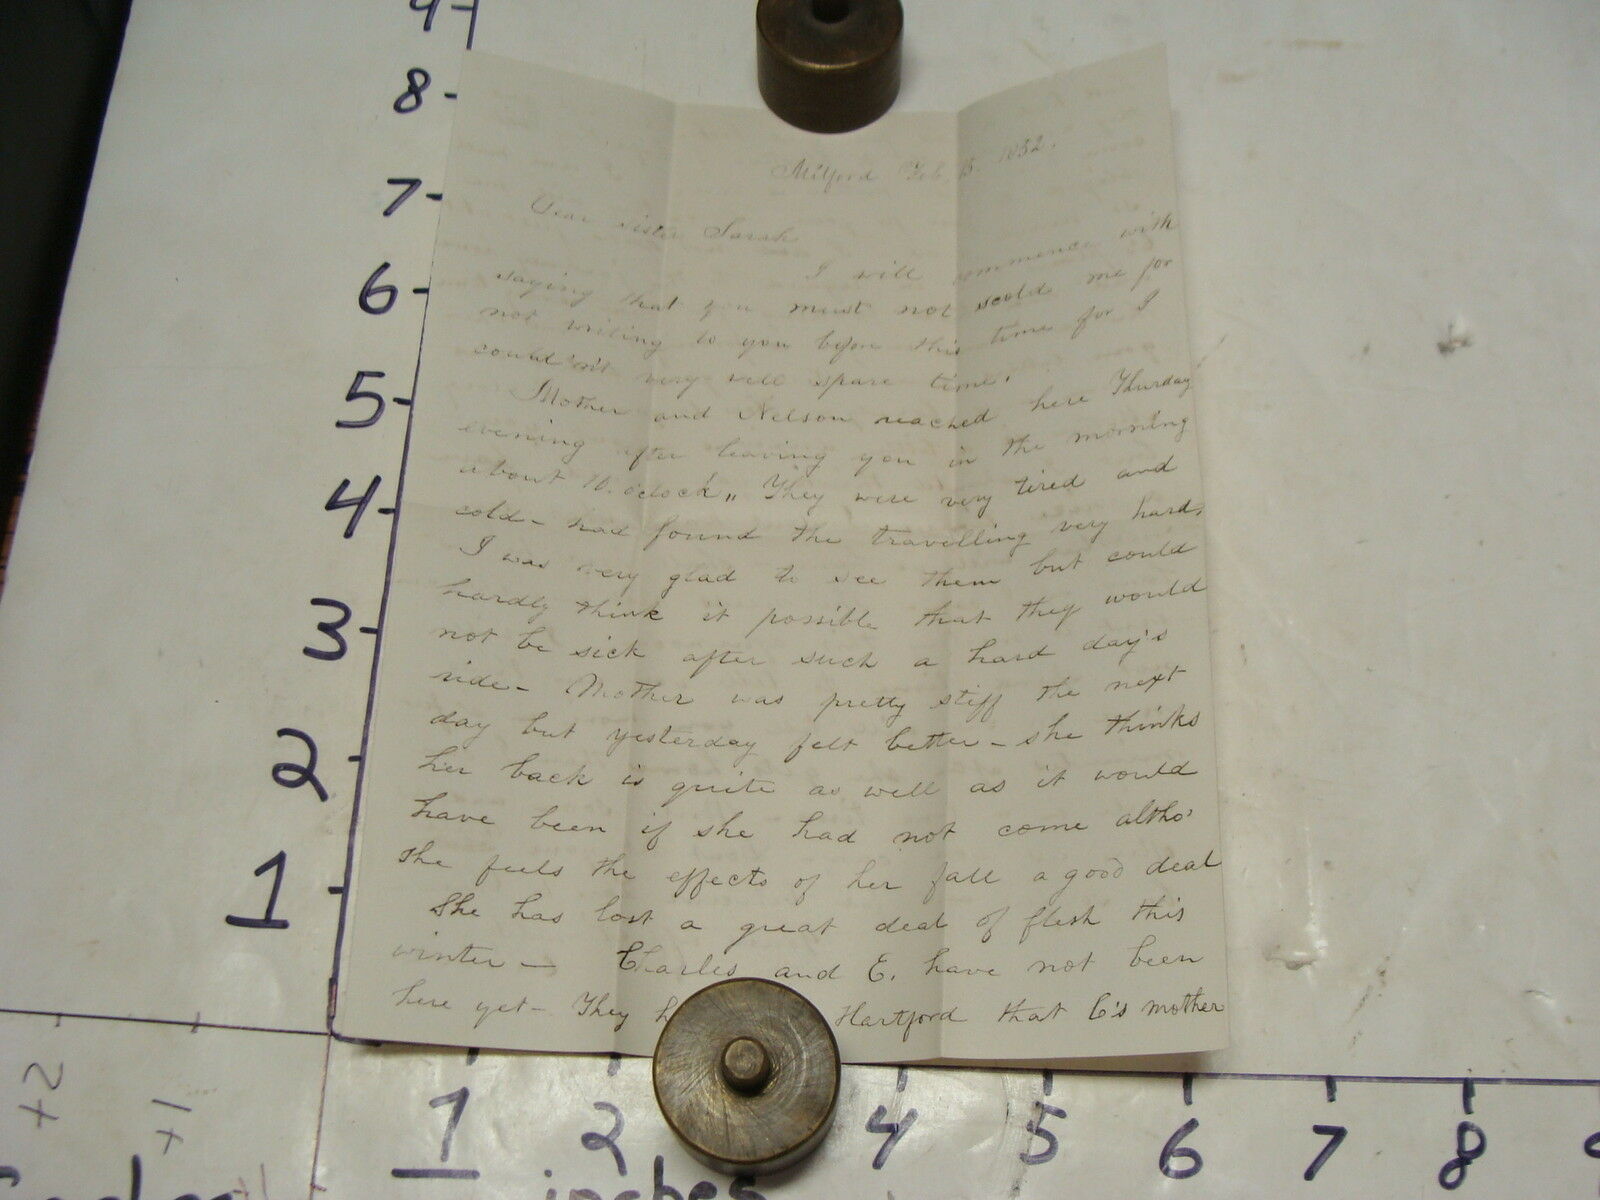 Milford Feb. 15. 1852.
Dear Sister Sarah
I will commence with
saying that you must not scold me for
not writing to you before this time for I
could'nt very well spare time.
Mother and Nelson reached here Thurday
evening after leaving you in the morning
about 10. oclock,, They were very tired and
cold - had found the travelling very hard,
I was very glad to see them but could
hardly think it possible that they would
not be sick after such a hard day's
ride - Mother was pretty stiff the next
day but yesterday felt better - she thinks
her back is quite as well as it would
have been if she had not come altho'
she feels the effects of her fall a good deal
She has lost a great deal of flesh this
winter — Charles and E. have not been
here yet - They Hartford that C's mother
9
8
7
6
5
4
3
2
1
+2
+1
1
2
4
5
6
7
8
inches